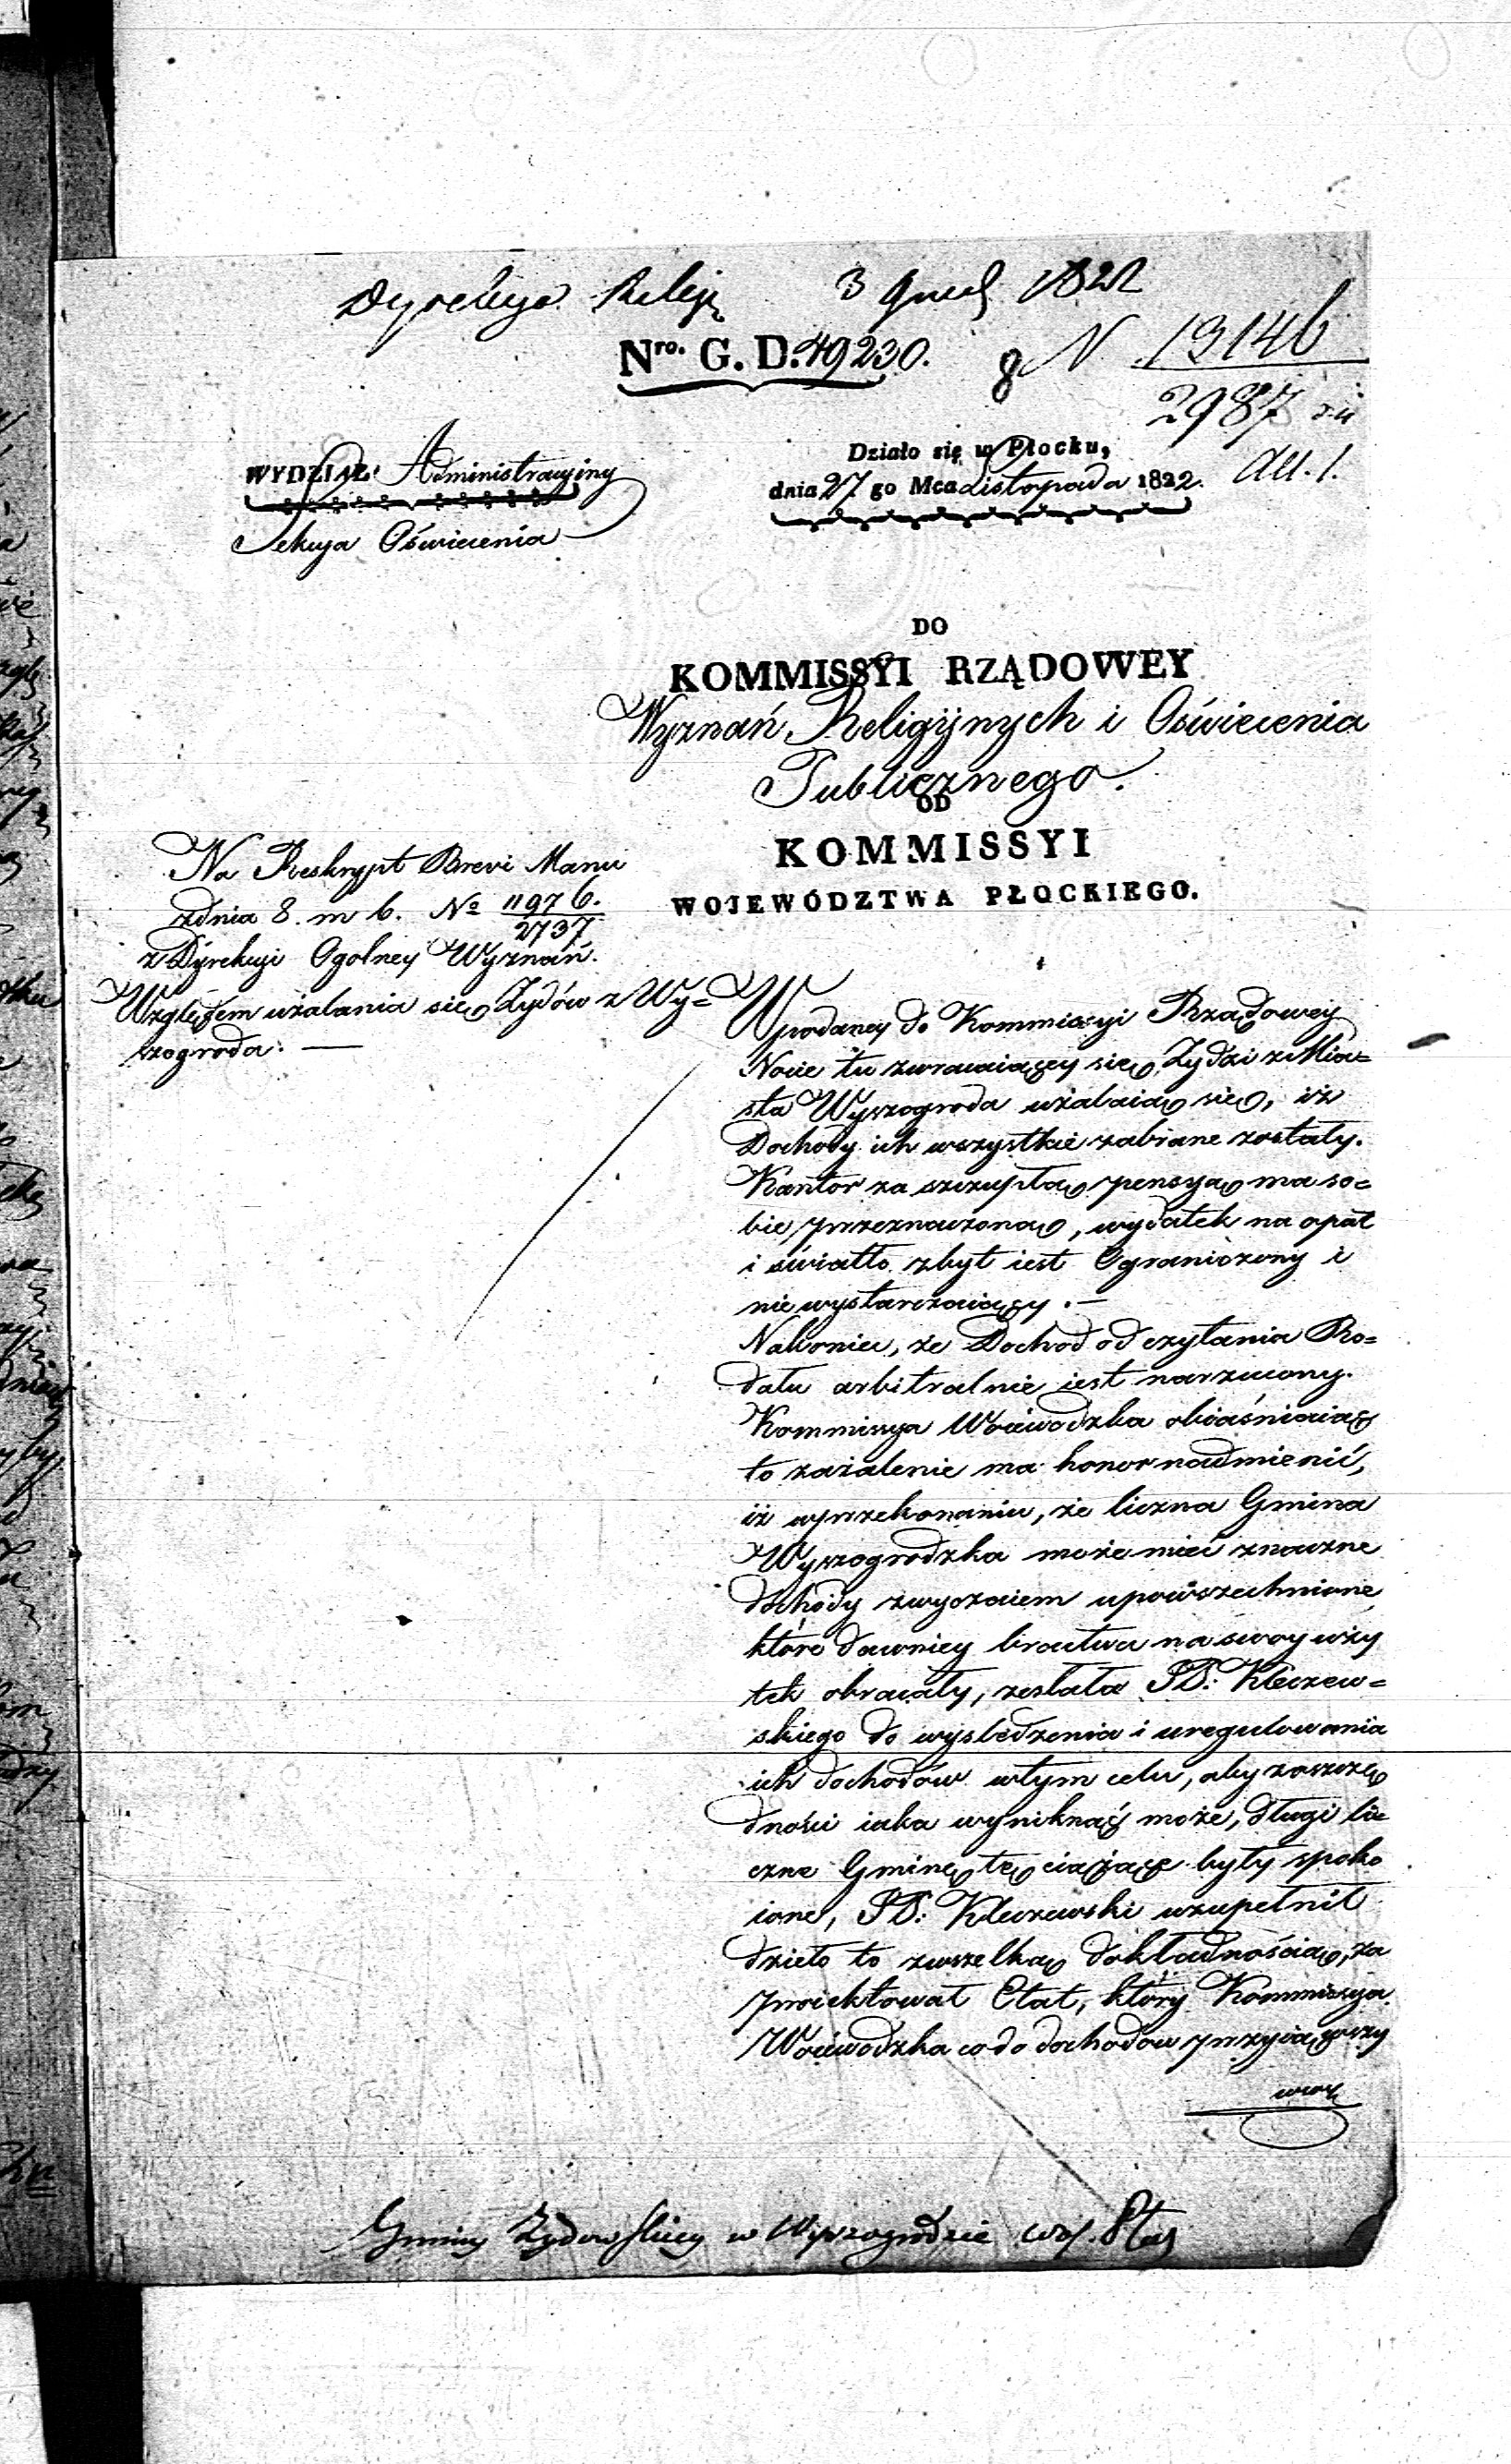 Dyrekcya Relig 3 Grud 1822
Nro. G. D. 49230. N 13146
2987
WYDZIAŁ Administracyiny
Sekcya Oświecenia
Działo się w Płocku,
dnia 27 go Mca Listopada 1822.
DO
KOMMISSYI RZĄDOWEY
Wyznań Religijnych i Oświecenia
Publicznego.
OD
KOMMISSYI
WOJEWÓDZTWA PŁOCKIEGO.
Na Reskrypt Brevi Manu
z dnia 8. m b. No 11976.
2737
z Dyrekcyi Ogolney Wyznań.
Względem użalania się Żydów z Wy=
szogroda. —
W podaney do Kommissyi Rządowey
Nocie tu zwracaiącey się Żydzi z Mia=
sta Wyszogroda użalaią się, iż
Dochody ich wszystkie zabrane zostały.
Kantor za szczupłą pensyą ma so=
bie przeznaczoną, wydatek na opał
i światło zbyt iest Ograniczony i
niewystarczaiący. —
Nakoniec, że Dochod od czytania Ro=
dału arbitralnie iest narzucony.
Kommissya Woiewodzka obiaśniaiąc
to zażalenie ma honor nadmienić,
iż w przekonaniu, że liczna Gmina
Wyszogrodzka może mieć znaczne
dochody zwyczaiem upowszechnione
które dawniey bractwa na swoy uży
tek obracały, zesłała PD: Kleczew=
skiego do wyśledzenia i uregulowania
ich dochodów w tym celu, aby z oszczę
dności iaka wyniknąć może, długi li=
czne Gminę tę ciążące były spoko
ione, PD: Kleczewski uzupełnił
dzieło to z wszelką dokładnością, za
proiektował Etat, który Kommissya
Woiewodzka co do dochodow przyiąwszy
Gminy Żydowskiey w Wyszogrodzie woj.